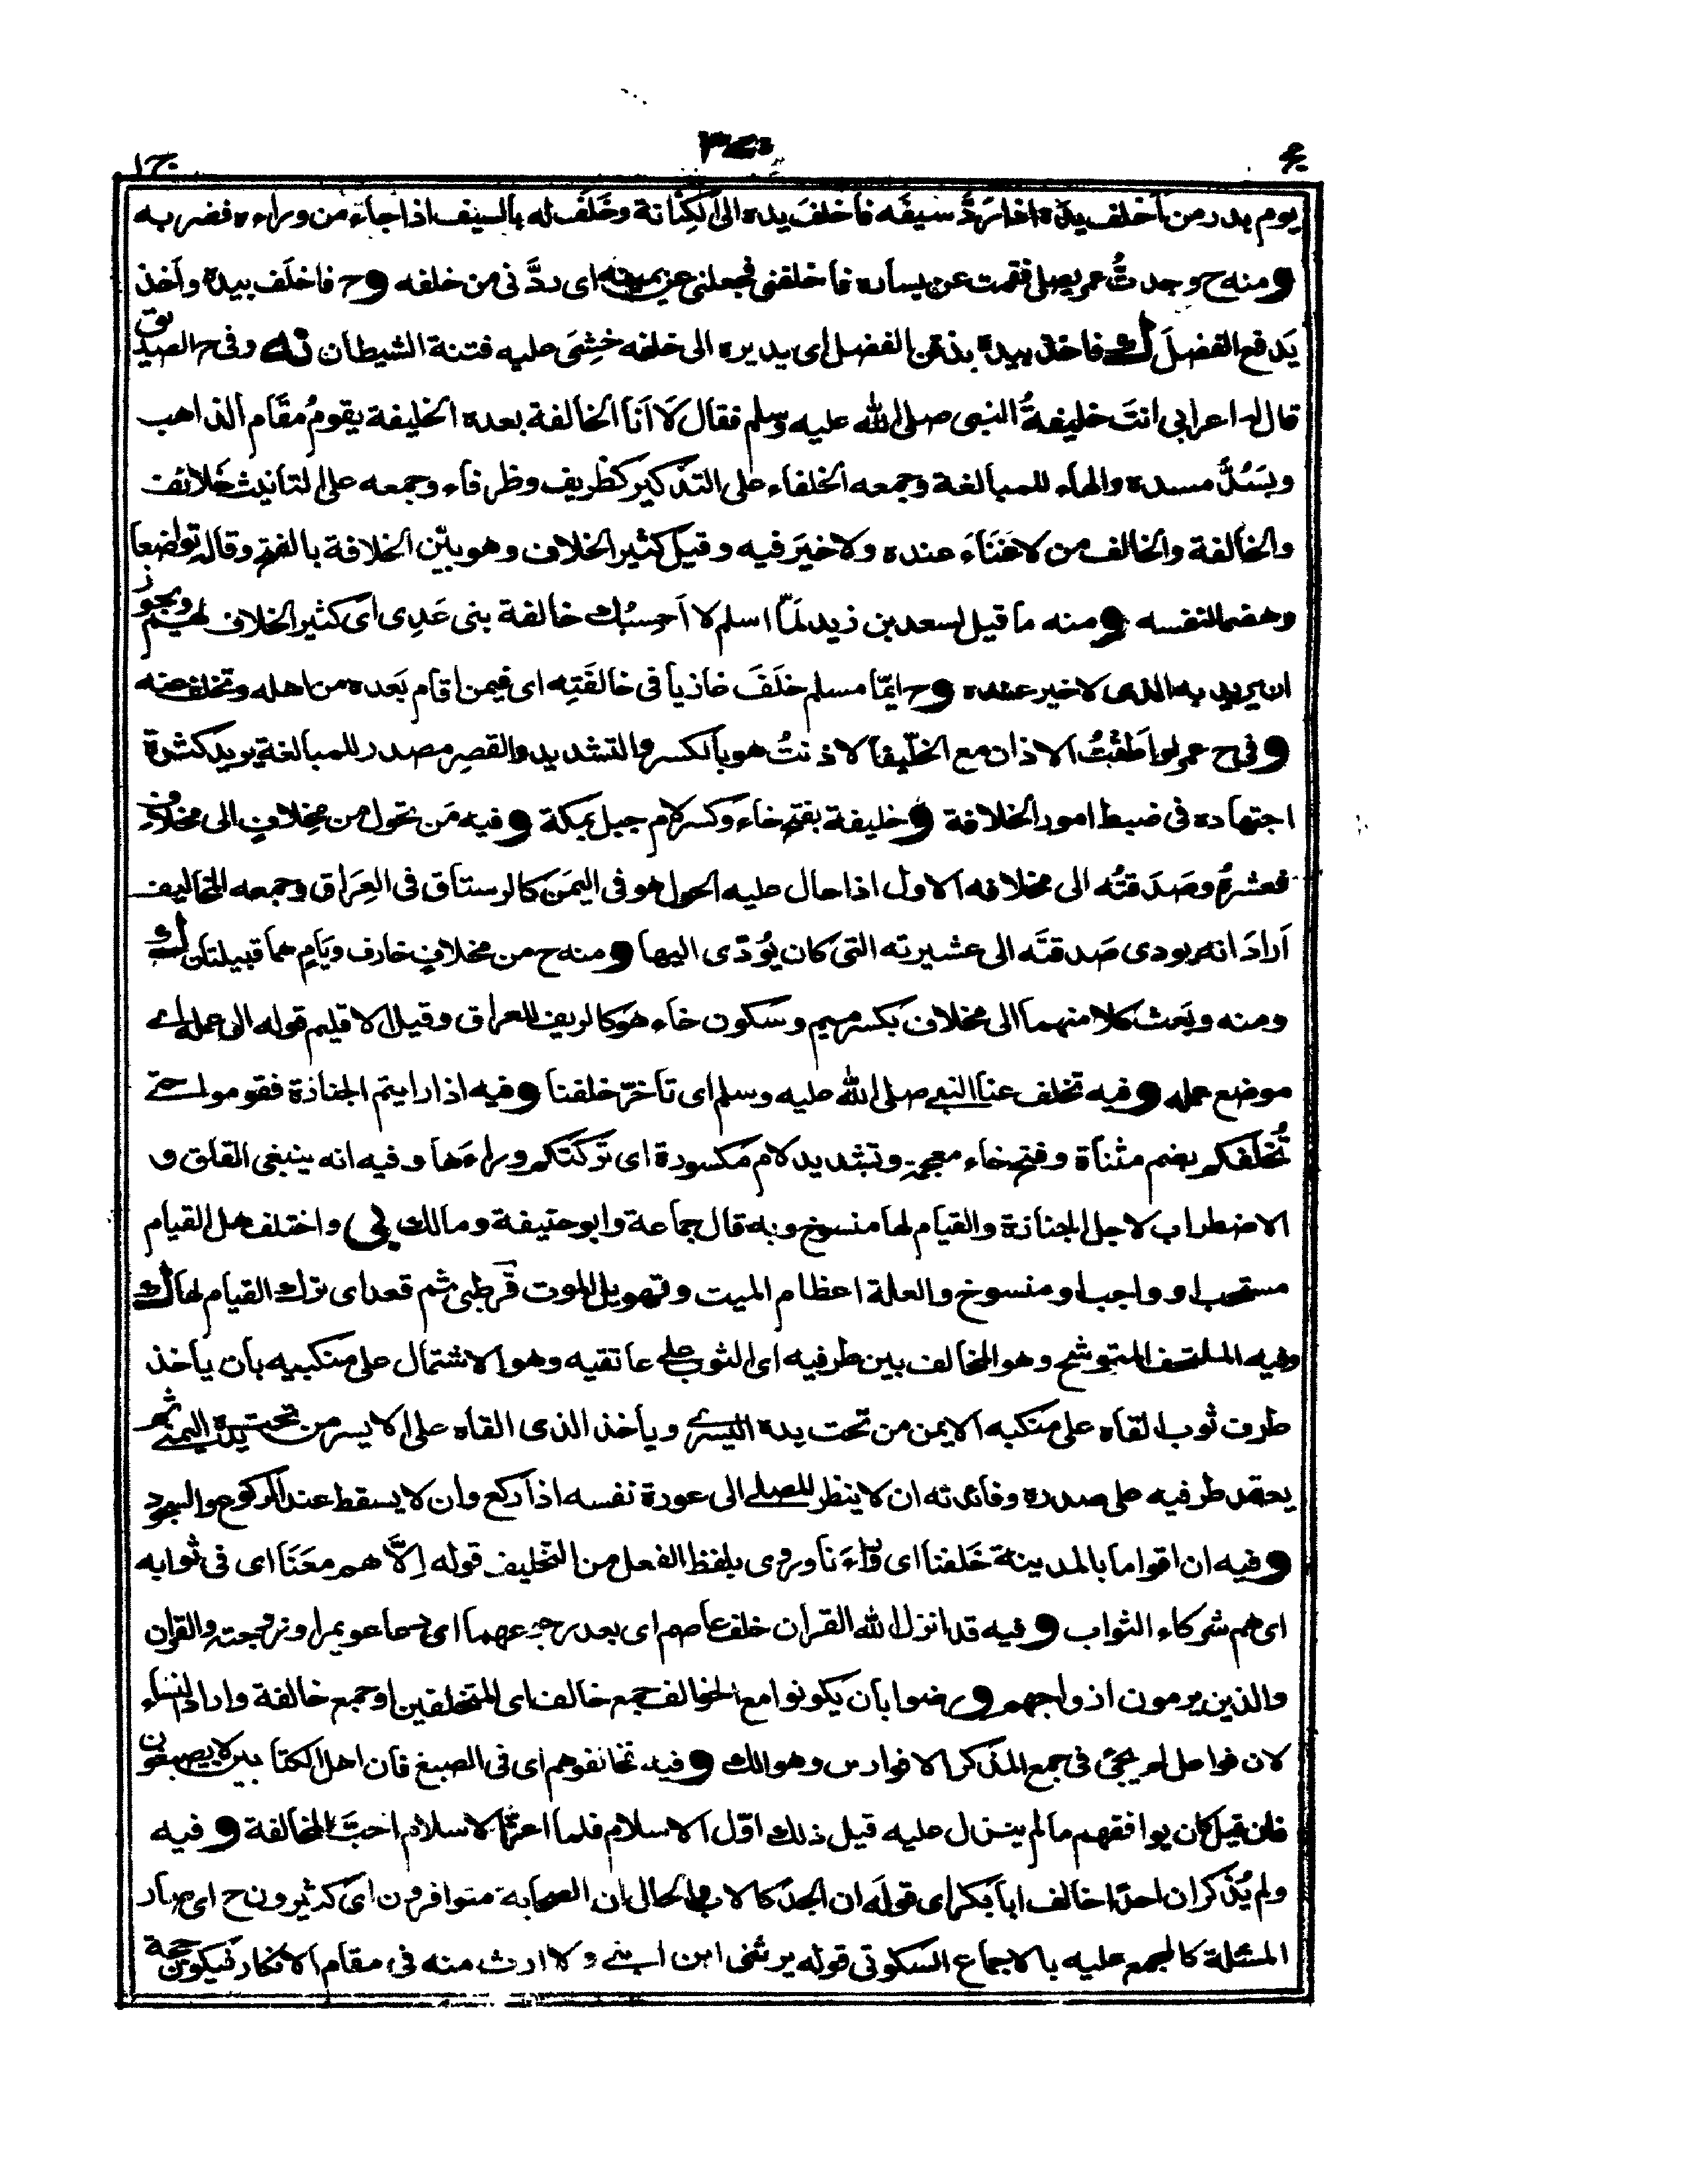 يوم بدر من اَخلف يدَه اذا سَرَدَّ سيفَه فاَخلفَ يده الى الكِنانة وخَلَف له بالسيف اذا جاء من وراءه فضربه
ومنه ح وجدتُّ عمر يصلى فقمت عن يساره فاخلفنى فجعلنى عن يمينه اى ردَّنى من خلفه وح فاخلَف بيده واَخذ
يَدفع الفضلَ ك فاخذ بيده بذقن الفضل اى يديره الى خلفه خشِىَ عليه فتنة الشيطان نه وفى ح الصديق
قال له اعرابى انتَ خليفةُ النبى صلى الله عليه وسلم فقال لَا اَنا الخالفة بعده الخليفة يقومُ مقَام الذاهب
ويَسُدُّ مسده والهاء للمبالغة وجمعه الخلفاء على التذكير كظريف وظرفاء وجمعه على التانيث خَلائف
والخالفة والخالف من لا غَنَاءَ عنده ولا خيرَ فيه وقيل كثير الخلاف وهو بيّن الخلافة بالفتح وقاله تواضعا
وهضما لنفسه ومنه ما قيل لسعد بن زيد لمَّا اسلم لا اَحسِبُك خالفة بنى عَدِى اى كثير الخلاف لهم ويجوز
ان يريد به الذى لا خير عنده وح ايّما مسلم خلَفَ غازيا فى خالفَتِه اى فيمن اقام بَعده من اهله وتخلف عنه
وفى ح عمر لو اَطقتُ الاذان مع الخلّيفا لاذنتُ هو بالكسر والتشديد والقصِر مصدر للمبالغة يريد كثرة
اجتهاده فى ضبط امور الخلافة وخليفة بفتح خاء وكسر لام جبل بمكة وفيه مَن تحول من مِخلافٍ الى مخلاف
فعشرُه وصَدَقتُه الى مخلافه الاول اذا حال عليه الحول هو فى اليمَن كالرستاق فى العِرَاق وجمعه المخاليف
اَرادَ انه يودى صَدقتَه الى عشيرته التى كان يُوَدّى اليها ومنه ح من مخلافٍ خارف ويَامٍ هما قبيلتان ك
ومنه وبَعث كلا منهما الى مخلاف بكسر ميم وسكون خاء هو كالريف للعراق وقيل الاقليم قوله الى عمله اى
موضع عمله وفيه تخلف عنا النبى صلى الله عليه وسلم اى تاَخرّ خلفنا وفيه اذا رايتم الجنازة فقوموا حتى
تُخلّفكم بضم مثناة وفتح خاء معجمة وتشديد لام مكسورة اى تَركتكم وراءَها وفيه انه ينبغى القلق و
الاضطراب لاجل الجنازة والقيام لها منسوخ وبه قال جماعة وابو حنيفة ومالك واختلف هل القيام
مستحب او واجب او منسوخ والعلة اعظام الميت وتهويل الموت قرطبى ثم قعد اى ترك القيام لها ك
وفيه الملتحف المتوشح وهو المخالف بين طرفيه اى الثوب على عاتقيه وهو الاشتمال على منكبيه بان ياخذ
طرف ثوب القاه على منكبه الايمن من تحت يده اليسرى وياخذ الذى القاه على الايسر من تحت يده اليمنى ثم
يعقد طرفيه على صدره وفائدته ان لا ينظر المصلى الى عورة نفسه اذا ركع وان لا يسقط عند الركوع والسجود
وفيه ان اقواما بالمدينة خَلفنا اى وراءَنا وروى بلفظ الفعل من التخليف قوله اِلَّا هم معَنَا اى فى ثوابه
اى هم شركاء الثواب وفيه قد انزل الله القران خلف عاصم اى بعد رجوعهما اى دعا عويمرا وزوجته والقران
والذين يرمون ازواجهم ورضوا بان يكونوا مع الخوالف جمع خالف اى المتخلفين او جمع خالفة واراد النساء
لان فواعل لم يجئ فى جمع المذكر الا فوارس وهوالك وفيه تخالفوهم اى فى الصبغ فان اهل الكتاب لا يصبغون
فان قيل كان يوافقهم ما لم ينزل عليه قيل ذلك اوّل الاسلام فلما اعزّ الاسلام احبَّ المخالفة وفيه
ولم يُذكر ان احدًا خالف ابا بكر اى قولَه ان الجدّ كالاب والحال ان الصحابة متوافرون اى كثيرون ح اى صار
المسئلة كالمجمع عليه بالاجماع السكوتى قوله يرثنى ابن ابنى ولا ارث منه فى مقام الانكار فيكون حجة